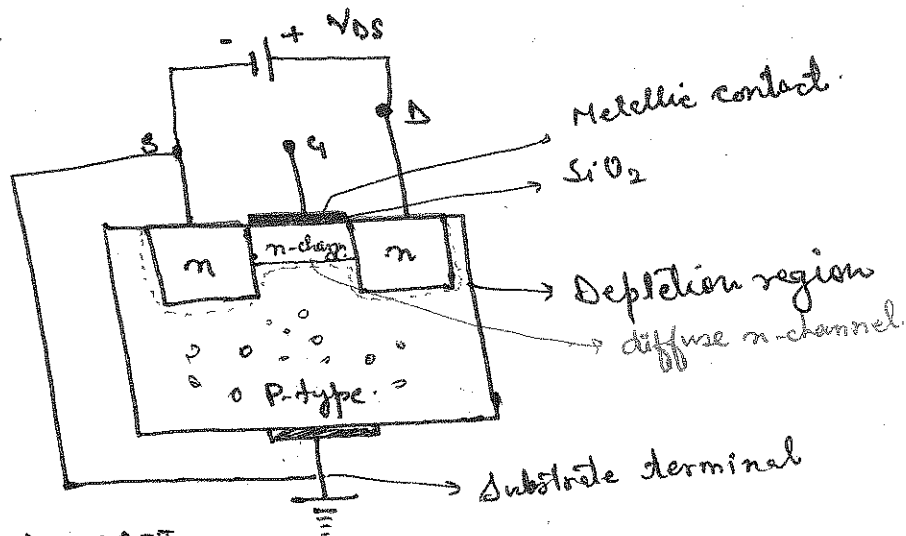 - + VDS
S
G
D
Metellic contact.
SiO2
n
n-chan
n
Depletion region
diffuse n-channel.
P-type.
Substrate terminal